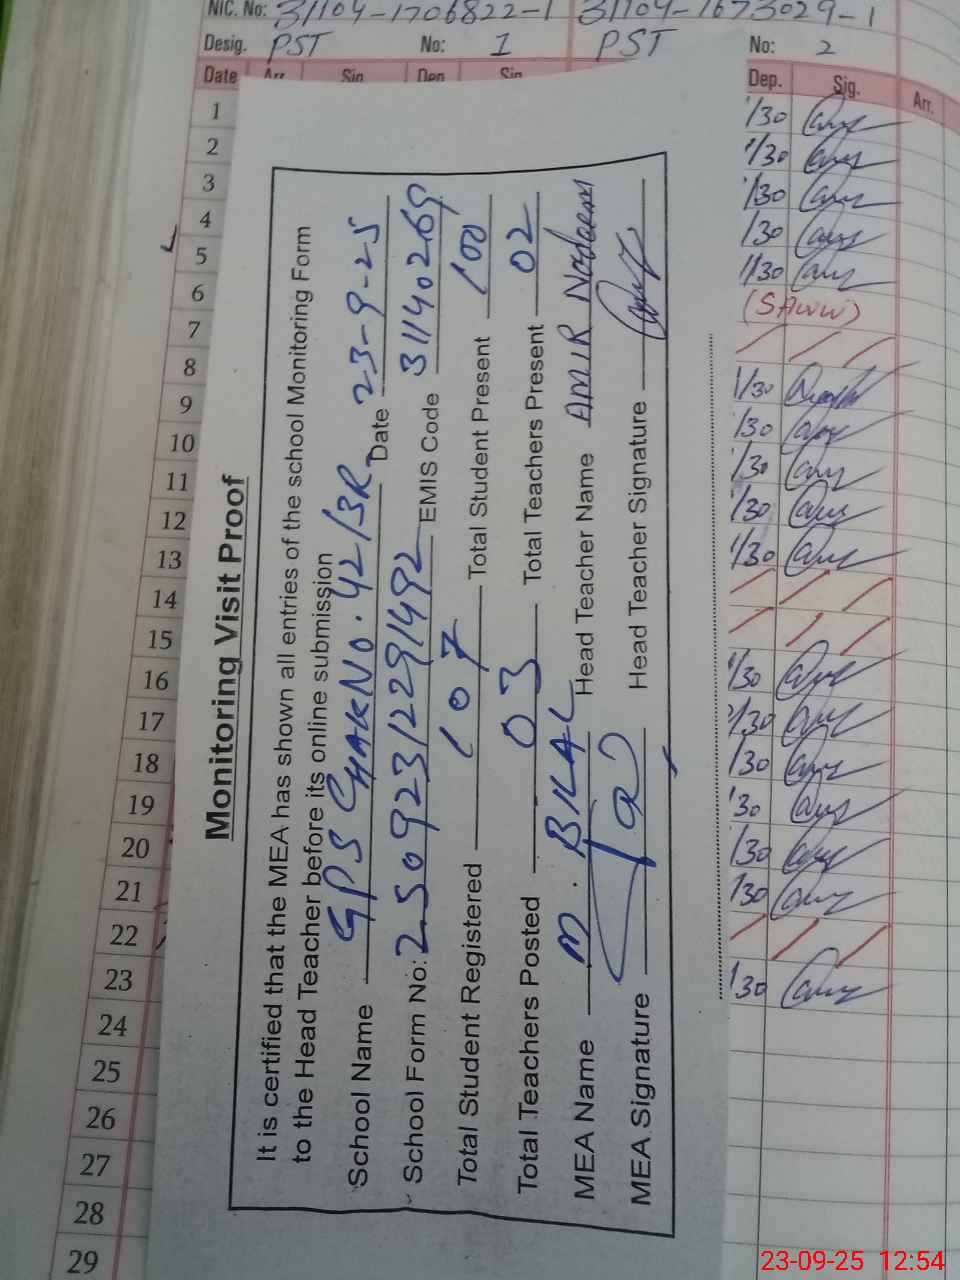 NIC. No: 31104-1706822-1 31104-1673029-1
Desig. PST No: 1 PST No: 2
Date Arr. Sig. Dep. Sig. Dep. Sig. Arr.
1 1/30
2 1/30
3 1/30
4 1/30
5 1/30
6 (SAWW)
7
8 1/30
9 1/30
10 1/30
11 1/30
12 1/30
13
14
15 1/30
16 1/30
17 1/30
18 1/30
19 1/30
20 1/30
21
22 1/30
23
24
25
26
27
28
29
Monitoring Visit Proof
It is certified that the MEA has shown all entries of the school Monitoring Form
to the Head Teacher before its online submission
School Name GPS CHAK NO. 42/3R Date 23-9-25
School Form No: 250923122291492 EMIS Code 31140269
Total Student Registered 107 Total Student Present 100
Total Teachers Posted 03 Total Teachers Present 02
MEA Name M. BILAL Head Teacher Name AMIR Nadeem
MEA Signature Head Teacher Signature
23-09-25 12:54